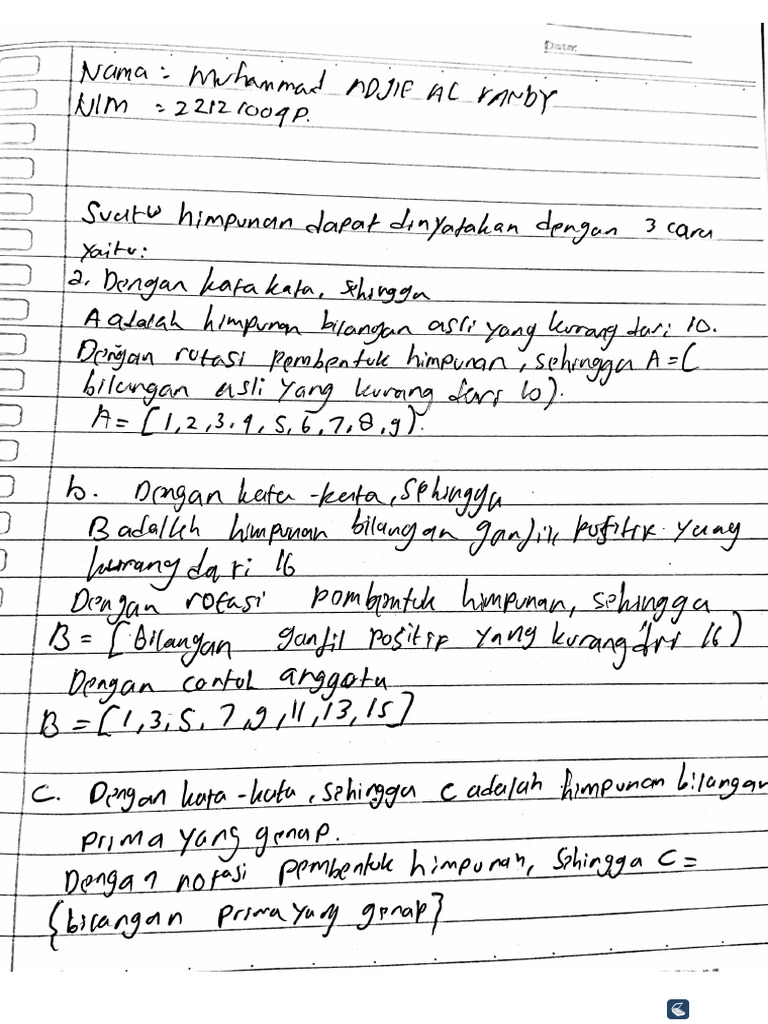 Date:
Nama : Muhammad ADJIE AL RANBY
NIM : 22121004P.
Suatu himpunan dapat dinyatakan dengan 3 cara
yaitu:
a. Dengan kata kata, sehingga
A adalah himpunan bilangan asli yang kurang dari 10.
Dengan rotasi pembentuk himpunan, sehingga A = (
bilangan asli yang kurang dari 10).
A = [1,2,3,4,5,6,7,8,9).
b. Dengan kata-kata, sehingga
B adallah himpunan bilangan ganjil positif yang
kurang dari 16
Dengan rotasi pembentuk himpunan, sehingga
B = [Bilangan ganjil positif yang kurang dari 16)
Dengan contoh anggota
B = [1,3,5,7,9,11,13,15]
C. Dengan kata-kata, sehingga C adalah himpunan bilangan
prima yang genap.
Dengan notasi pembentuk himpunan, sehingga C =
{bilangan prima yang genap}